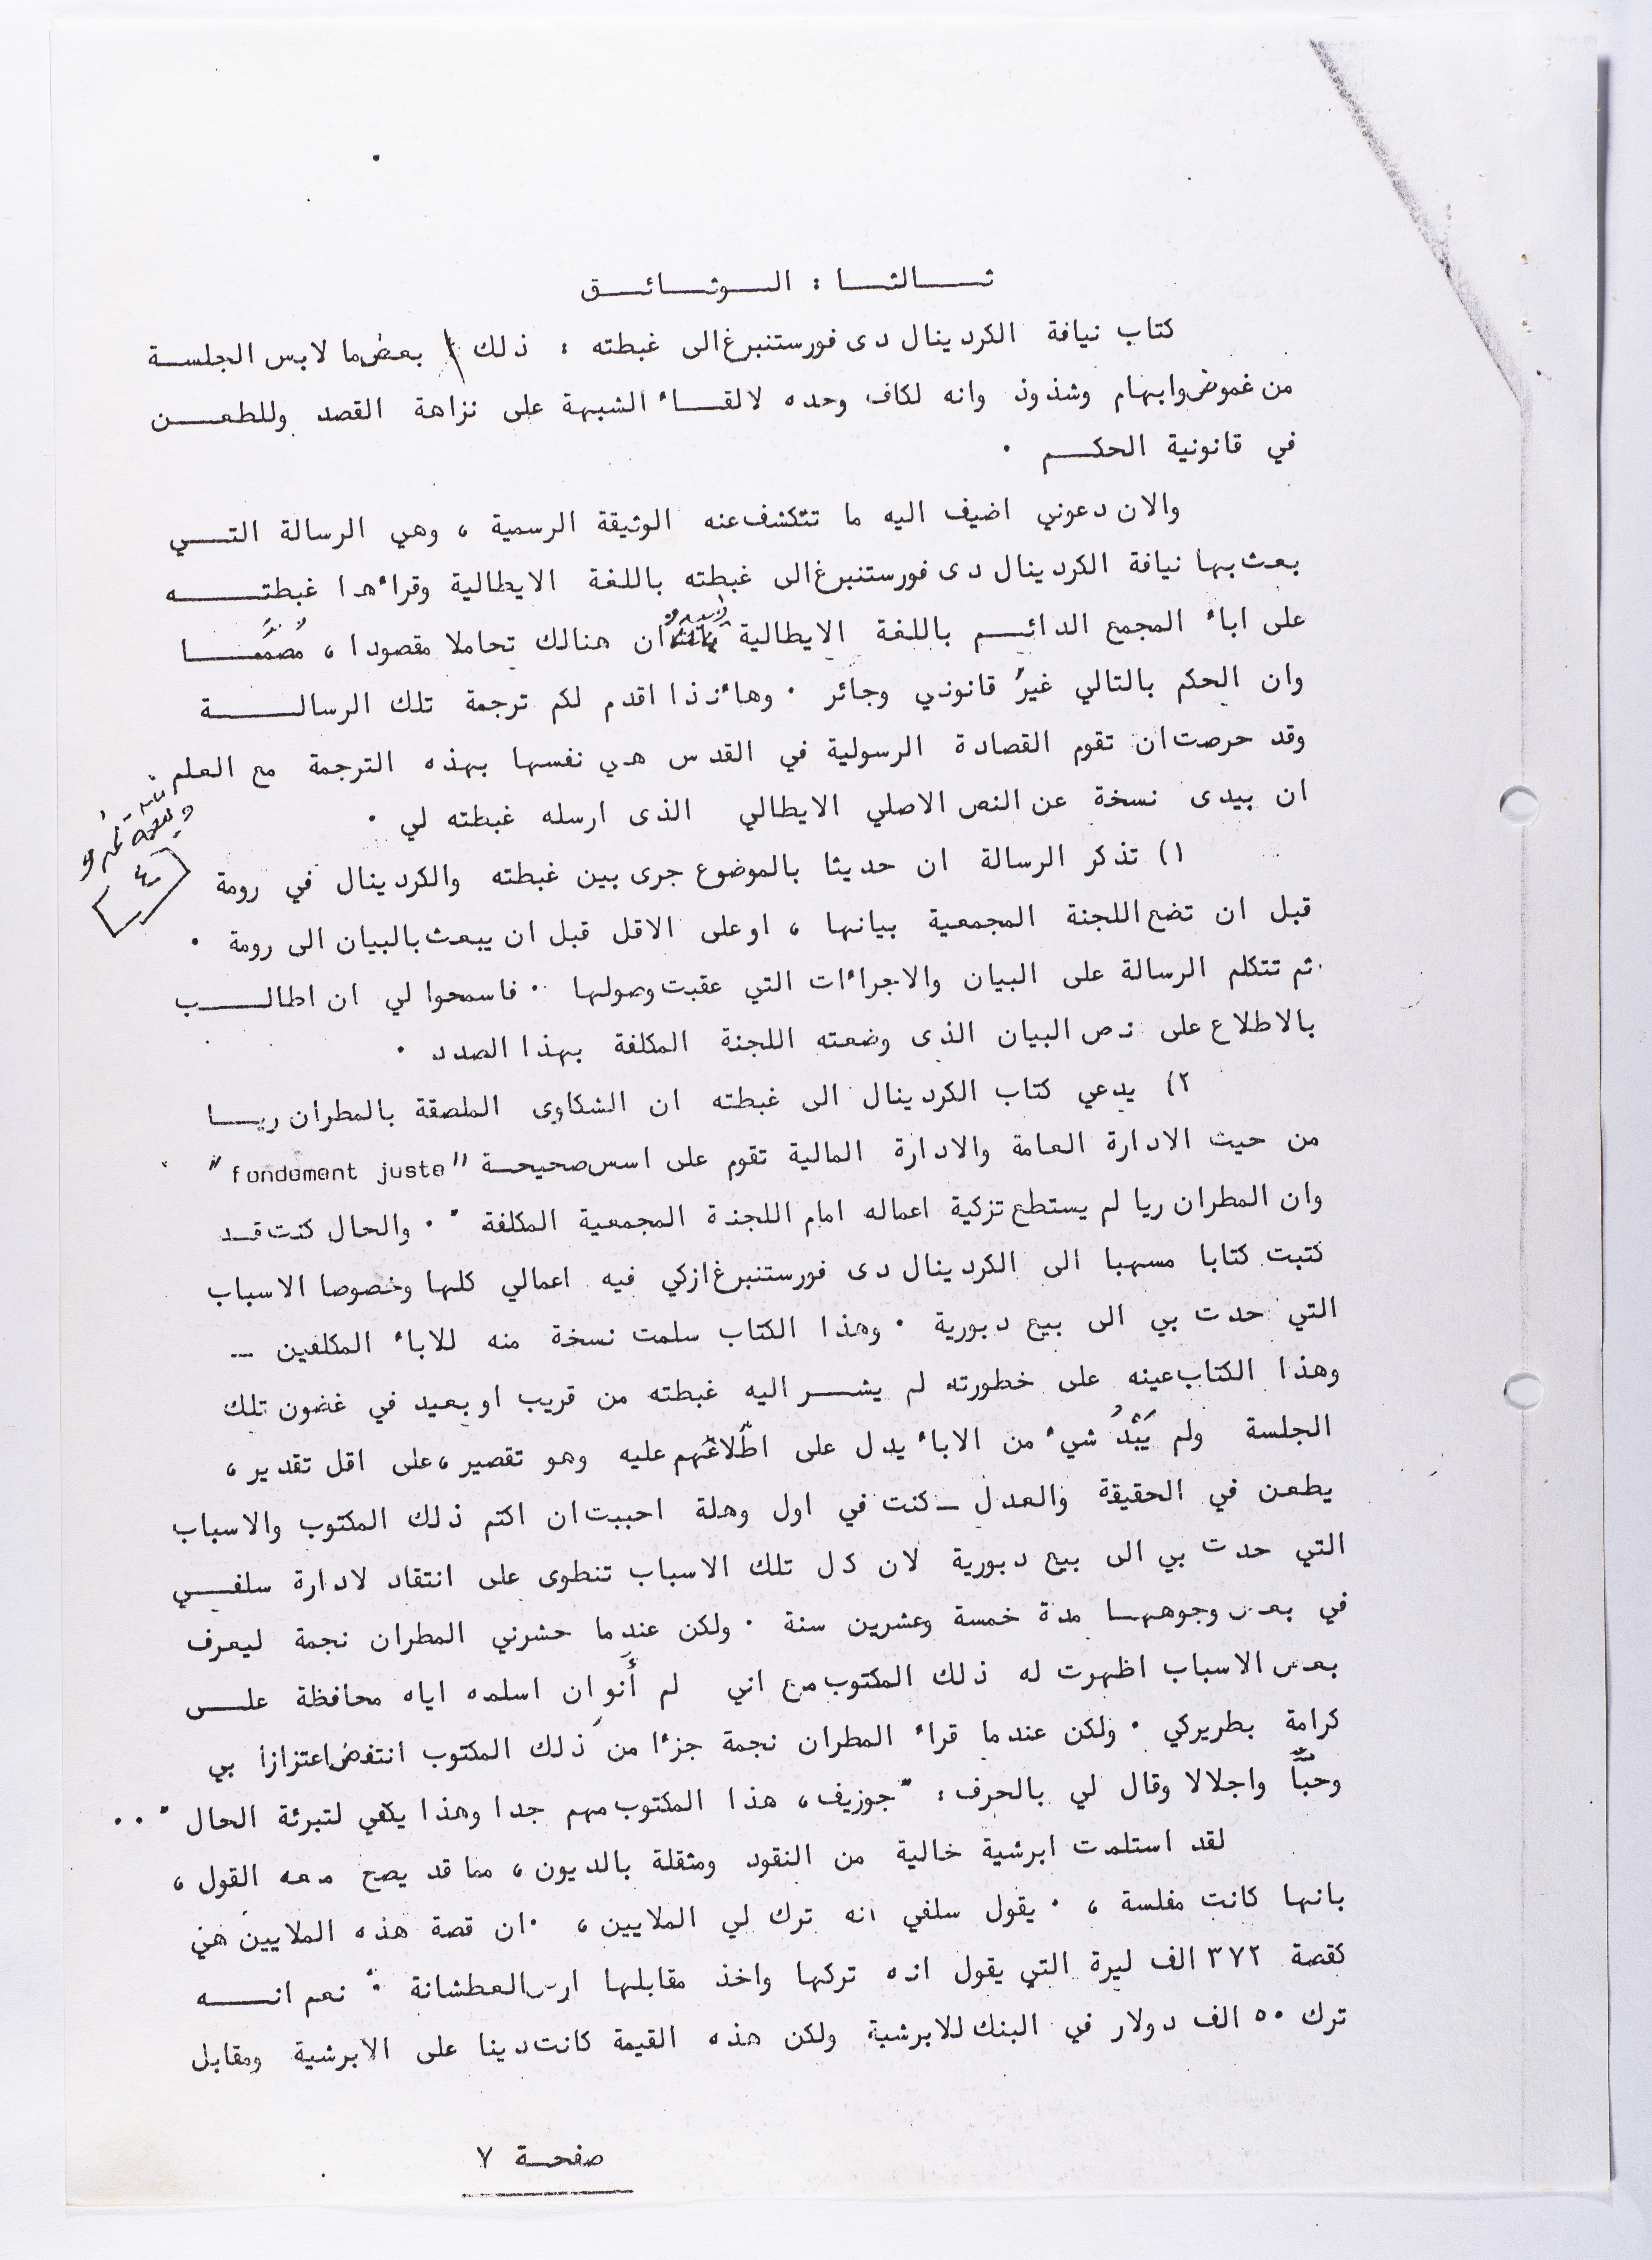 ثالثا : الوثائق
كتاب نيافة الكردينال دى فورستنبرغ الى غبطته : ذلك بعض ما لابس الجلسة
من غموض وابهام وشذوذ وانه لكاف وحده لالقاء الشبهة على نزاهة القصد وللطعن
في قانونية الحكم .
والان دعوني اضيف اليه ما تتكشف عنه الوثيقة الرسمية ، وهي الرسالة التي
بعث بها نيافة الكردينال دى فورستنبرغ الى غبطته باللغة الايطالية وقراءها غبطته
على اباء المجمع الدائم باللغة الايطالية ان هنالك تحاملا مقصودا ، مُصمَّما
وان الحكم بالتالي غيرُ قانوني وجائر . وهاءنذا اقدم لكم ترجمة تلك الرسالة
وقد حرصت ان تقوم القصادة الرسولية في القدس هي نفسها بهذه الترجمة مع العلم
ان بيدى نسخة عن النص الاصلي الايطالي الذى ارسله غبطته لي .
١) تذكر الرسالة ان حديثا بالموضوع جرى بين غبطته والكردينال في رومة
قبل ان تضع اللجنة المجمعية بيانها ، او على الاقل قبل ان يبعث بالبيان الى رومة .
ثم تتكلم الرسالة على البيان والاجراءات التي عقبت وصولها . فاسمحوا لي ان اطالب
بالاطلاع على نص البيان الذى وضعته اللجنة المكلفة بهذا الصدد .
٢) يدعي كتاب الكردينال الى غبطته ان الشكاوى الملصقة بالمطران ريا
من حيث الادارة العامة والادارة المالية تقوم على اسس صحيحة "fondement juste"
وان المطران ريا لم يستطع تزكية اعماله امام اللجنة المجمعية المكلفة " . والحال كنت قد
كتبت كتابا مسهبا الى الكردينال دى فورستنبرغ ازكي فيه اعمالي كلها وخصوصا الاسباب
التي حدت بي الى بيع دبورية . وهذا الكتاب سلمت نسخة منه للاباء المكلفين --
وهذا الكتاب عينه على خطورته لم يشر اليه غبطته من قريب او بعيد في غضون تلك
الجلسة ولم يَبْدُ شيء من الاباء يدل على اطّلاعهم عليه وهو تقصير ، على اقل تقدير ،
يطعن في الحقيقة والعدل - كنت في اول وهلة احببت ان اكتم ذلك المكتوب والاسباب
التي حدت بي الى بيع دبورية لان كل تلك الاسباب تنطوى على انتقاد لادارة سلفي
في بعض وجوهها مدة خمسة وعشرين سنة . ولكن عندما حشرني المطران نجمة ليعرف
بعض الاسباب اظهرت له ذلك المكتوب مع اني لم أنو ان اسلمه اياه محافظة على
كرامة بطريركي . ولكن عندما قراء المطران نجمة جزءا من ذلك المكتوب انتفض اعتزازا بي
وحبّاً واجلالا وقال لي بالحرف : " جوزيف ، هذا المكتوب مهم جدا وهذا يكفي لتبرئة الحال " . .
لقد استلمت ابرشية خالية من النقود ومثقلة بالديون ، مما قد يصح معه القول ،
بانها كانت مفلسة ، . يقول سلفي انه ترك لي الملايين ، . ان قصة هذه الملايين هي
كقصة ٣٧٢ الف ليرة التي يقول انه تركها واخذ مقابلها ارض العطشانة " نعم انه
ترك ٥٠ الف دولار في البنك للابرشية ولكن هذه القيمة كانت دينا على الابرشية ومقابل
صفحة ٧